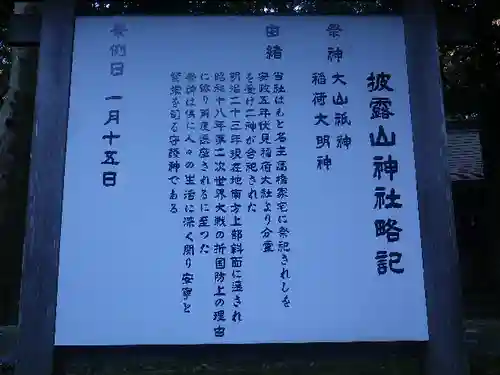 披露山神社略記
祭神 大山祇神
稲荷大明神
由緒
当社はもと名主高橋家宅に祭祀されしを
安政五年伏見稲荷大社より分霊
を受け二神が合祀された
明治二十三年現在地南方上部斜面に遷され
昭和十八年第二次世界大戦の折国防上の理由
に依り再度遷座されるに至つた
祭神は偶に人々の生活に深く関り安寧と
繁栄を司る守護神である
祭例日 一月十五日